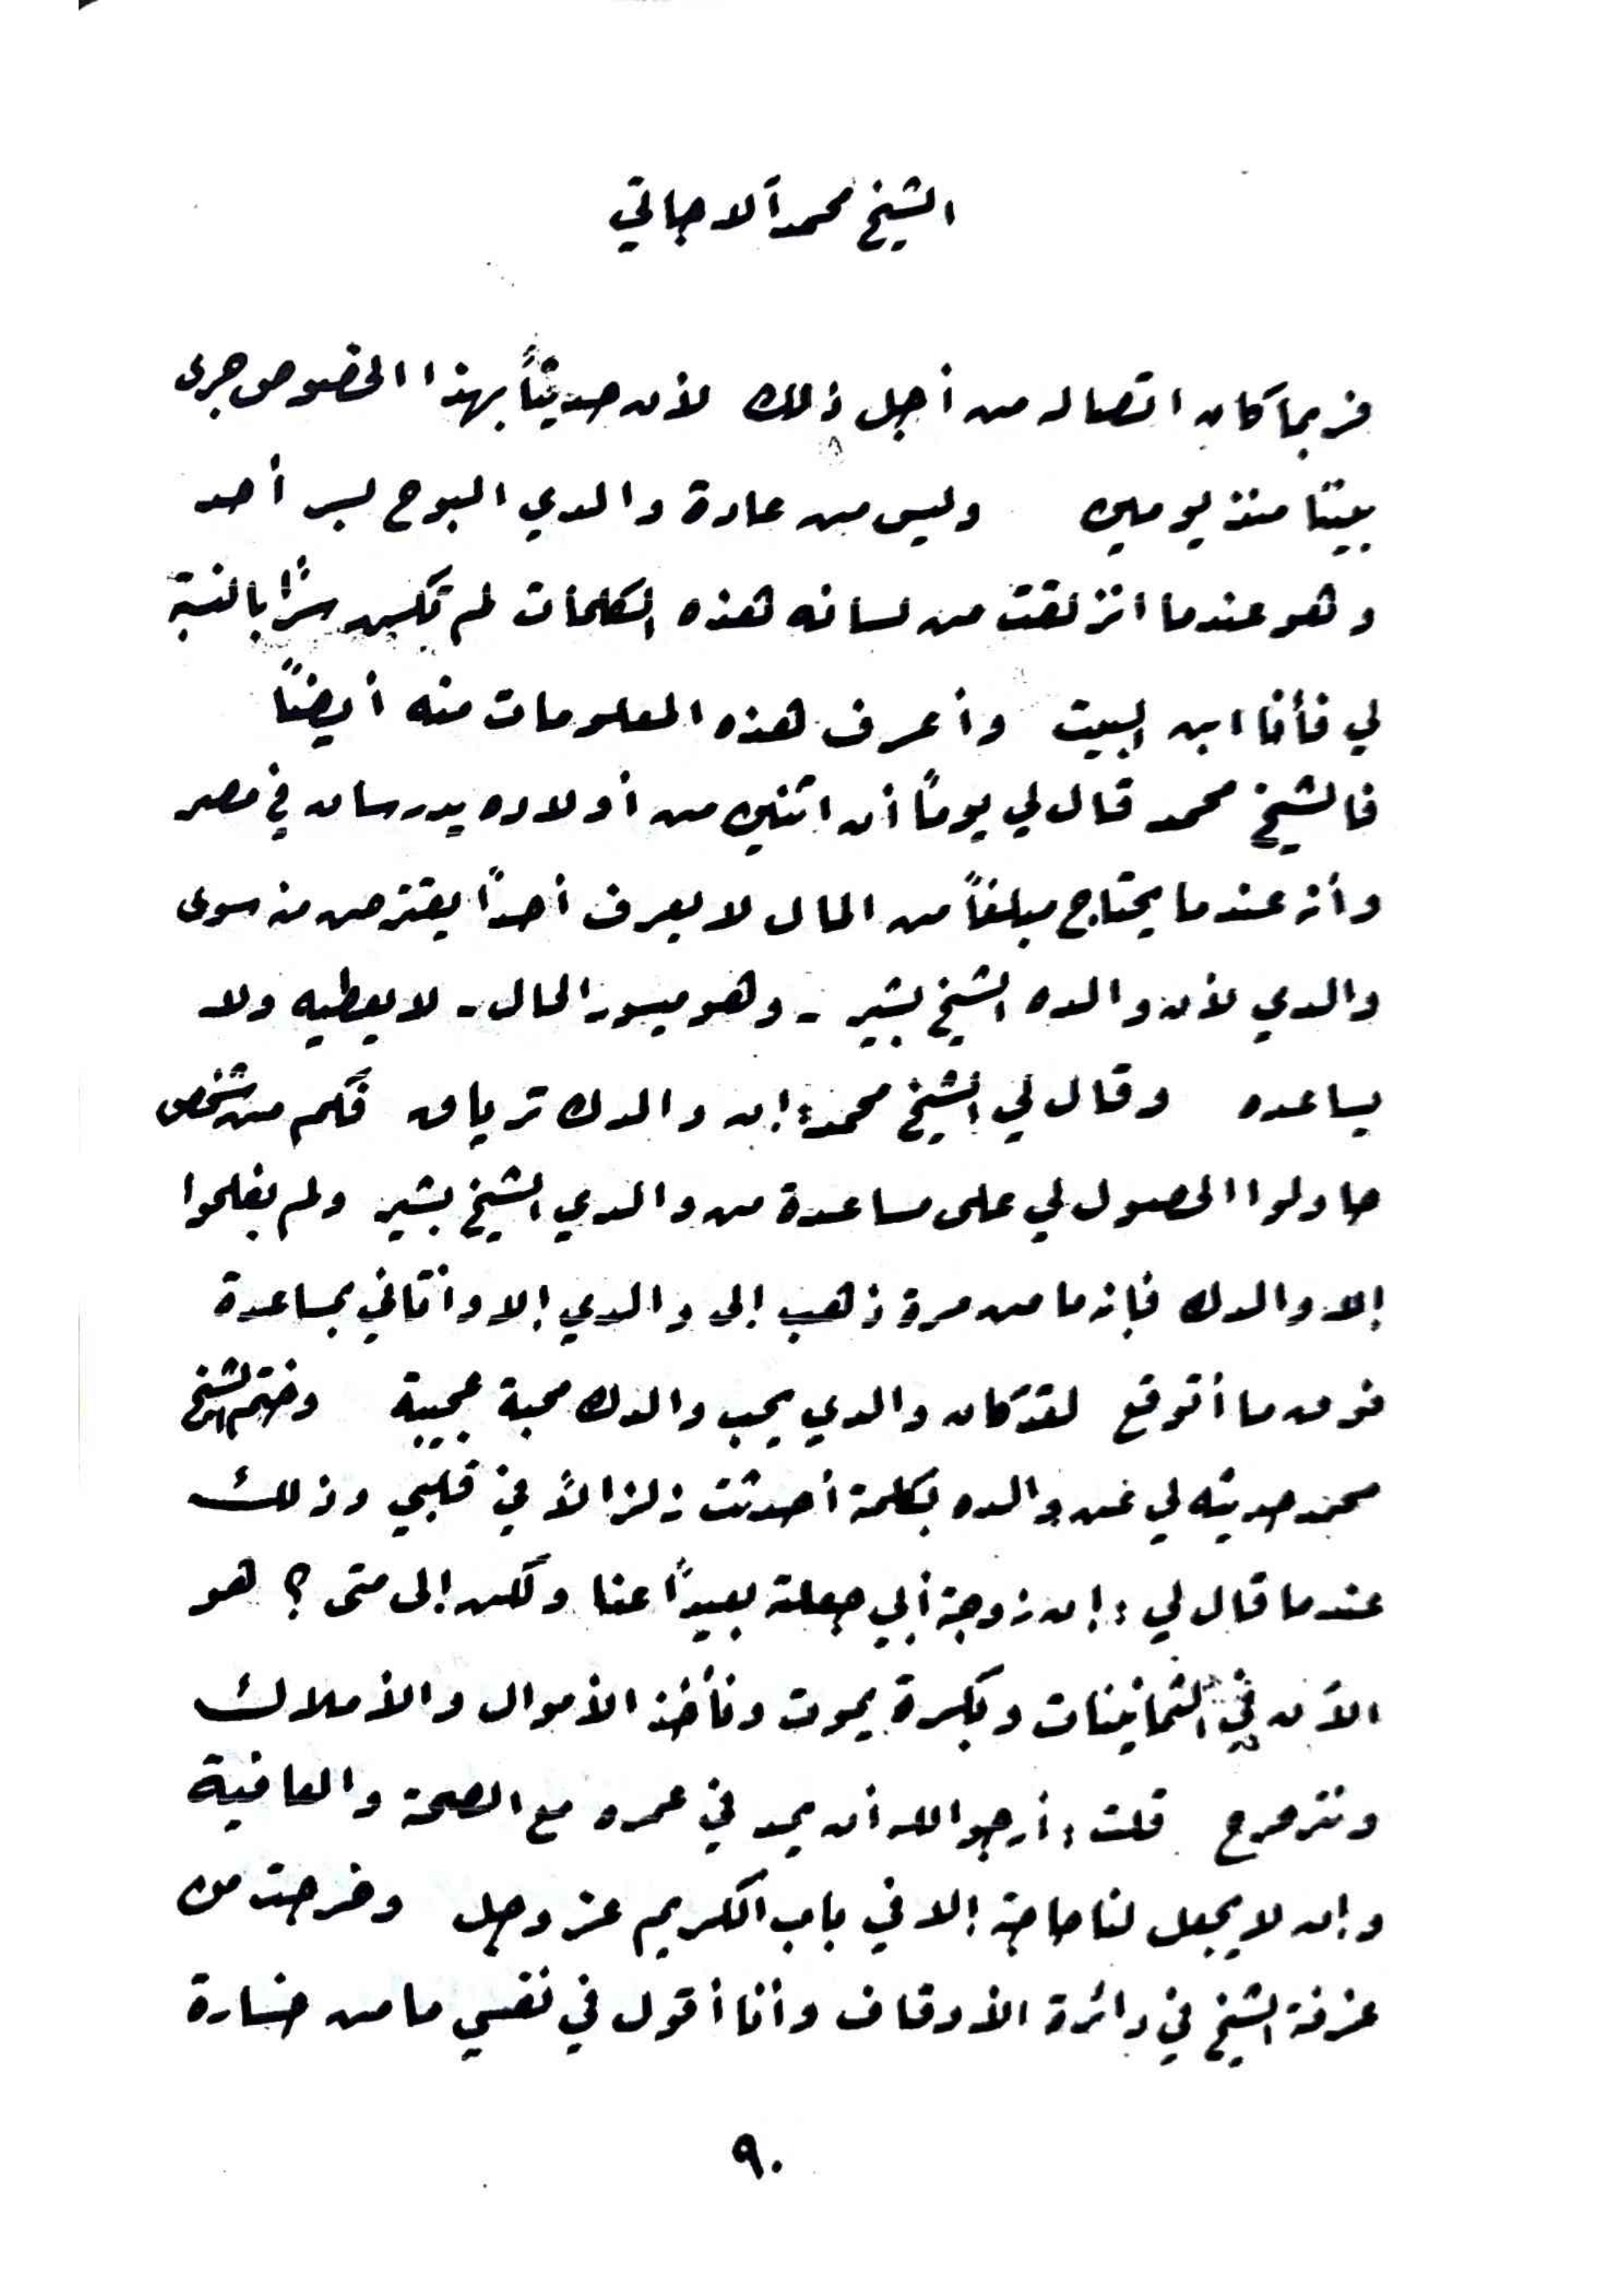 الشيخ محمد ألاجاتي
فربما كان اتصاله من أجل ذلك لأن حديثاً بهذا الخصوص جرى
بيننا منذ يومين وليس من عادة والدي البوح بسر أحد
وهو عندما انزلقت من لسانه هذه الكلمات لم تكن سرًا بالنسبة
لي فأنا ابن البيت وأعرف هذه المعلومات منه أيضاً
فالشيخ محمد قال لي يوماً أن اثنين من أولاده يدرسان في مصر
وأنه عندما يحتاج مبلغاً من المال لا يعرف أحداً يقترض منه سوى
والدي لأن والده الشيخ بشير - وهو ميسور الحال - لا يعطيه ولا
يساعده وقال لي الشيخ محمد: إن والدك ترياق فكم من شخص
حاولوا الحصول لي على مساعدة من والدي الشيخ بشير ولم يفلحوا
إلا والدك فإنه ما من مرة ذهب إلى والدي إلا وأتاني بمساعدة
فوق ما أتوقع لقد كان والدي يحب والدك محبة عجيبة وختم الشيخ
محمد حديثه لي عن والده بكلمة أحدثت زلزالاً في قلبي وذلك
عندما قال لي: إن زوجة أبي جعلته بعيداً عنا ولكن إلى متى؟ هو
الآن في الثمانينات وبكرة يموت ونأخذ الأموال والأملاك
ونترحرح قلت: أرجو الله أن يمد في عمره مع الصحة والعافية
وإن لا يجعل لنا حاجة إلا في باب الكريم عز وجل وخرجت من
غرفة الشيخ في دائرة الأوقاف وأنا أقول في نفسي ما من خسارة
٩٠